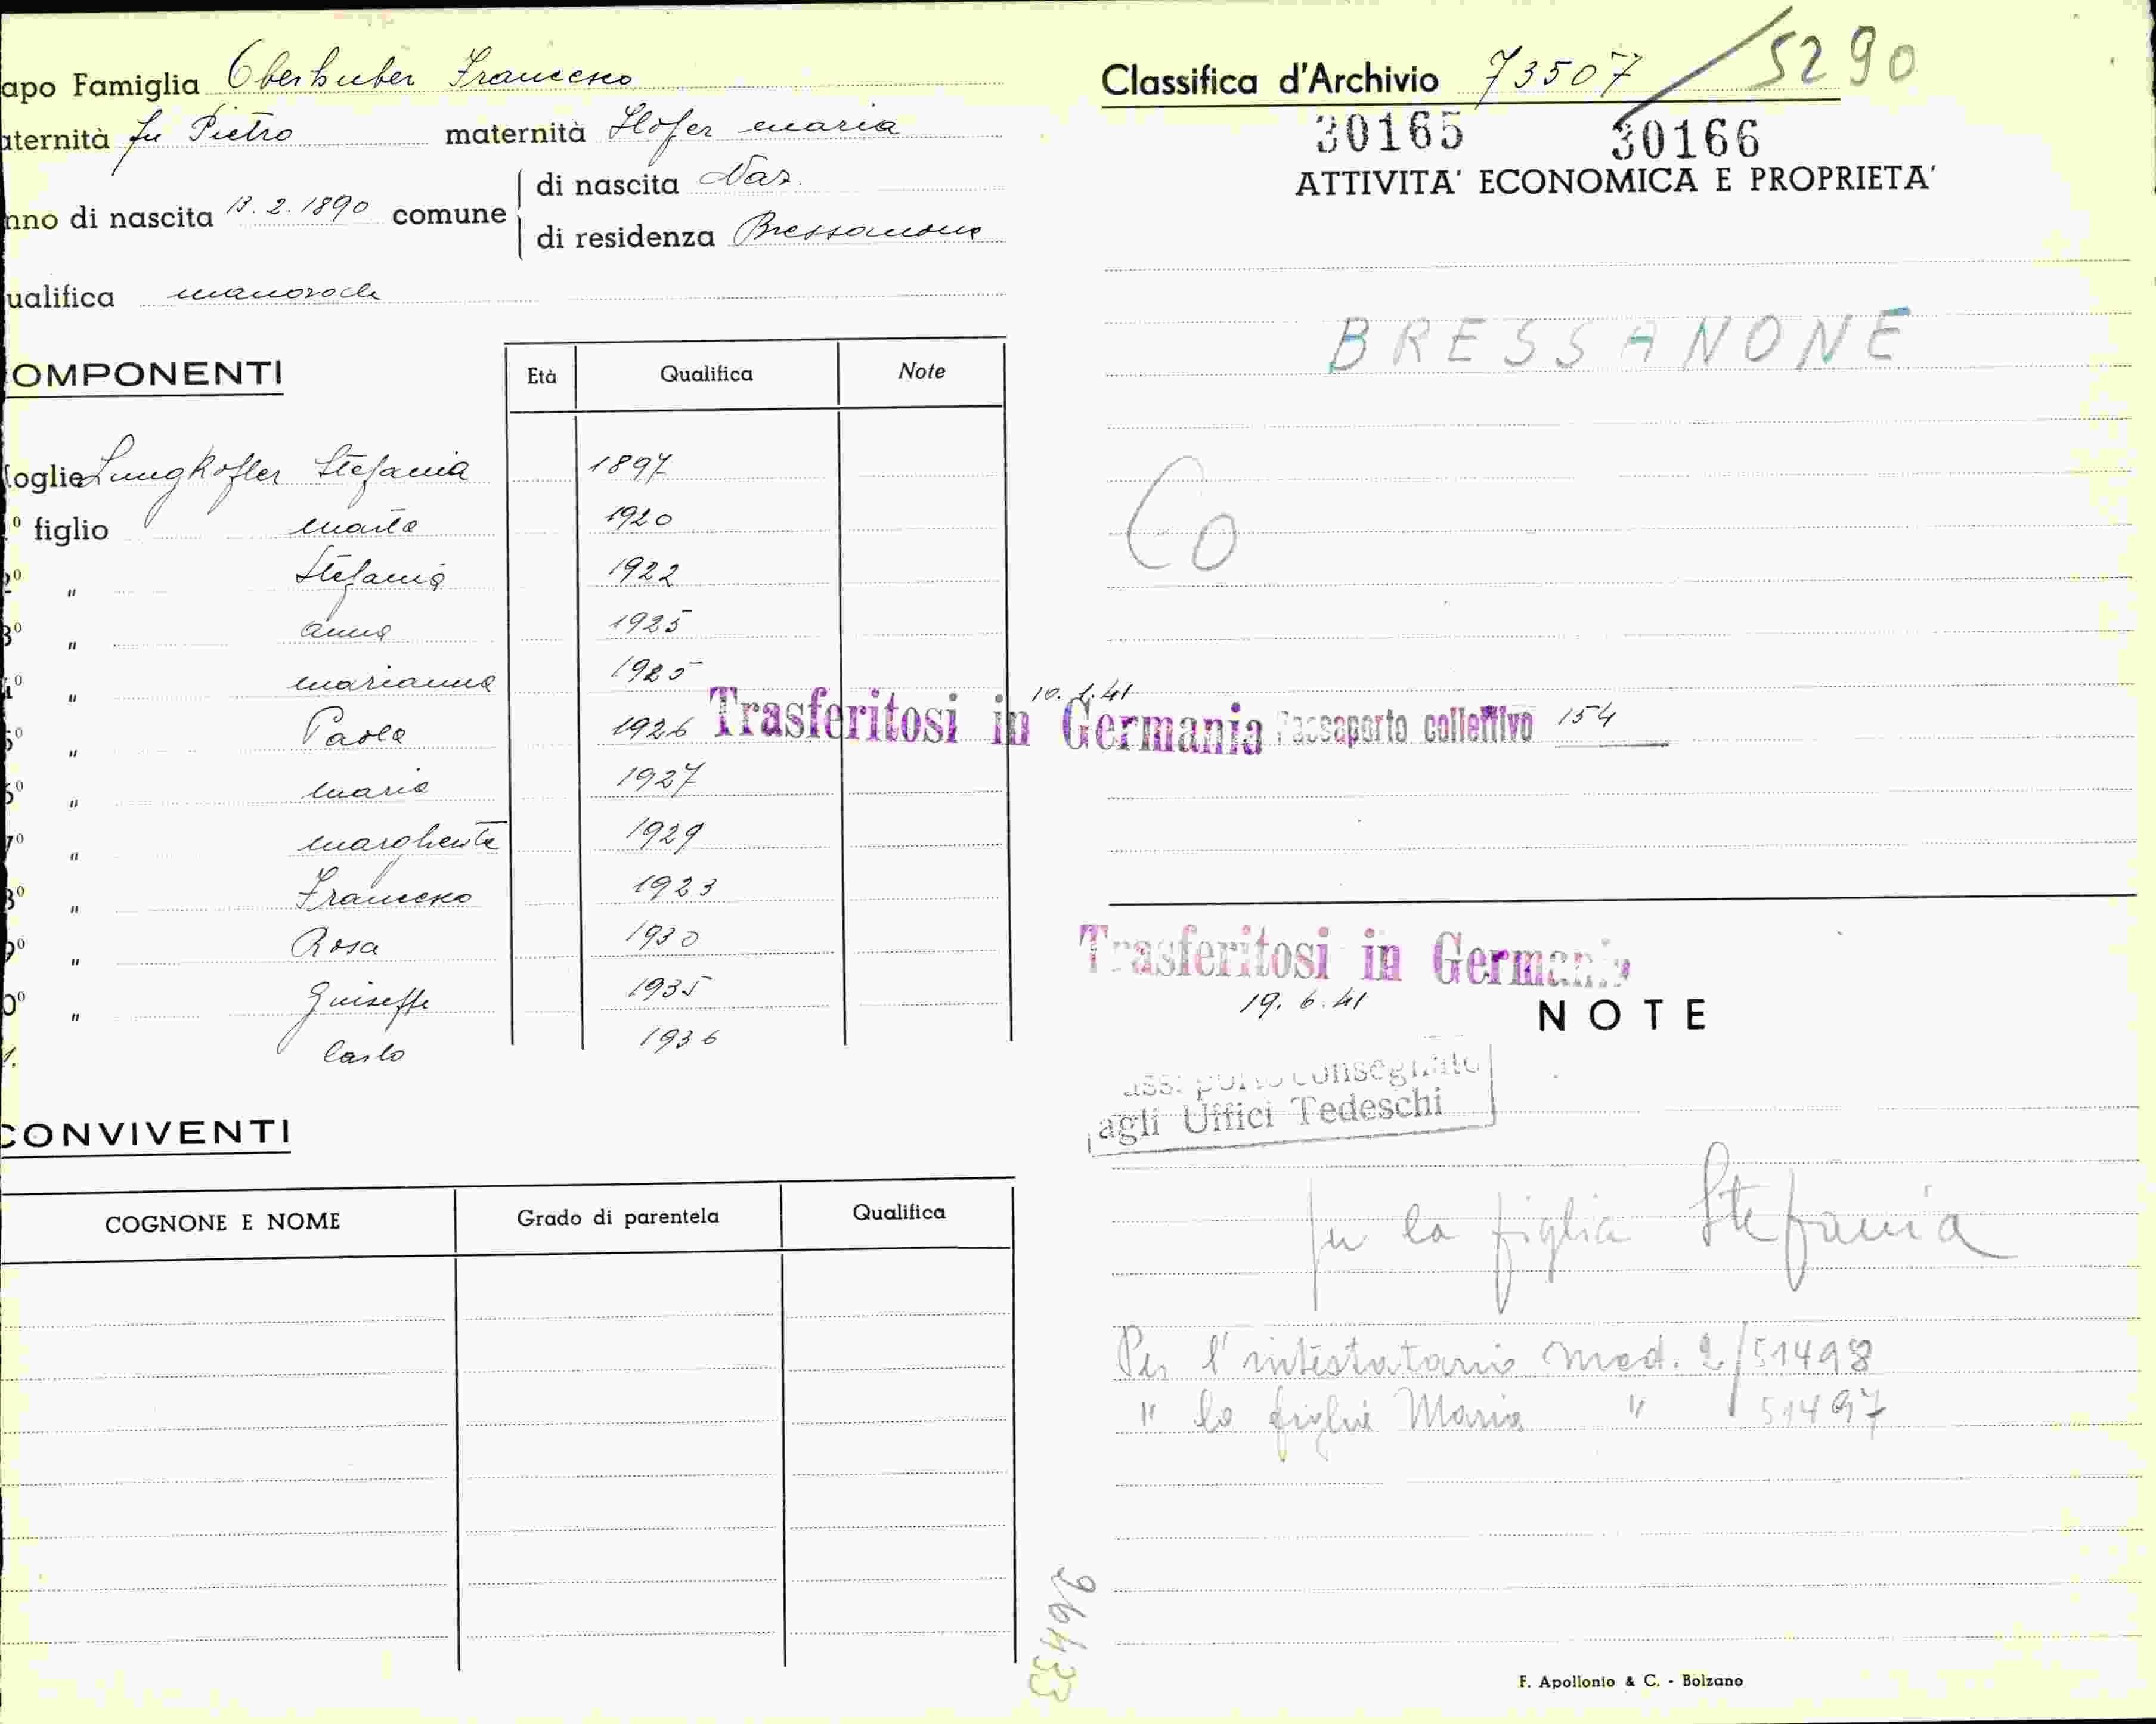 apo Famiglia Oberhuber Francesco
aternità fu Pietro maternità Hofer Maria
nno di nascita 13.2.1890 comune di nascita Naz.
di residenza Bressanone
ualifica manovale
OMPONENTI Età Qualifica Note
oglie Lungkofler Stefania 1897
º figlio Marta 1920
2º " Stefania 1922
3º " Anna 1925
4º " Marianna 1925
5º " Paola 1926
6º " Maria 1927
7º " Margherita 1929
8º " Francesco 1923
9º " Rosa 1930
0º " Guiseppe 1935
1. Carlo 1936
CONVIVENTI
COGNONE E NOME Grado di parentela Qualifica
Classifica d'Archivio 73507 / 5290
30165 30166
ATTIVITA' ECONOMICA E PROPRIETA'
BRESSANONE
Co
Trasferitosi in Germania Passaporto collettivo 154
Trasferitosi in Germania
19.6.41
NOTE
consegnato
agli Uffici Tedeschi
per la figlia Stefania
Per l'intestatario mod. 2/51498
" la figlia Maria " 51497
26433
F. Apollonio & C. - Bolzano